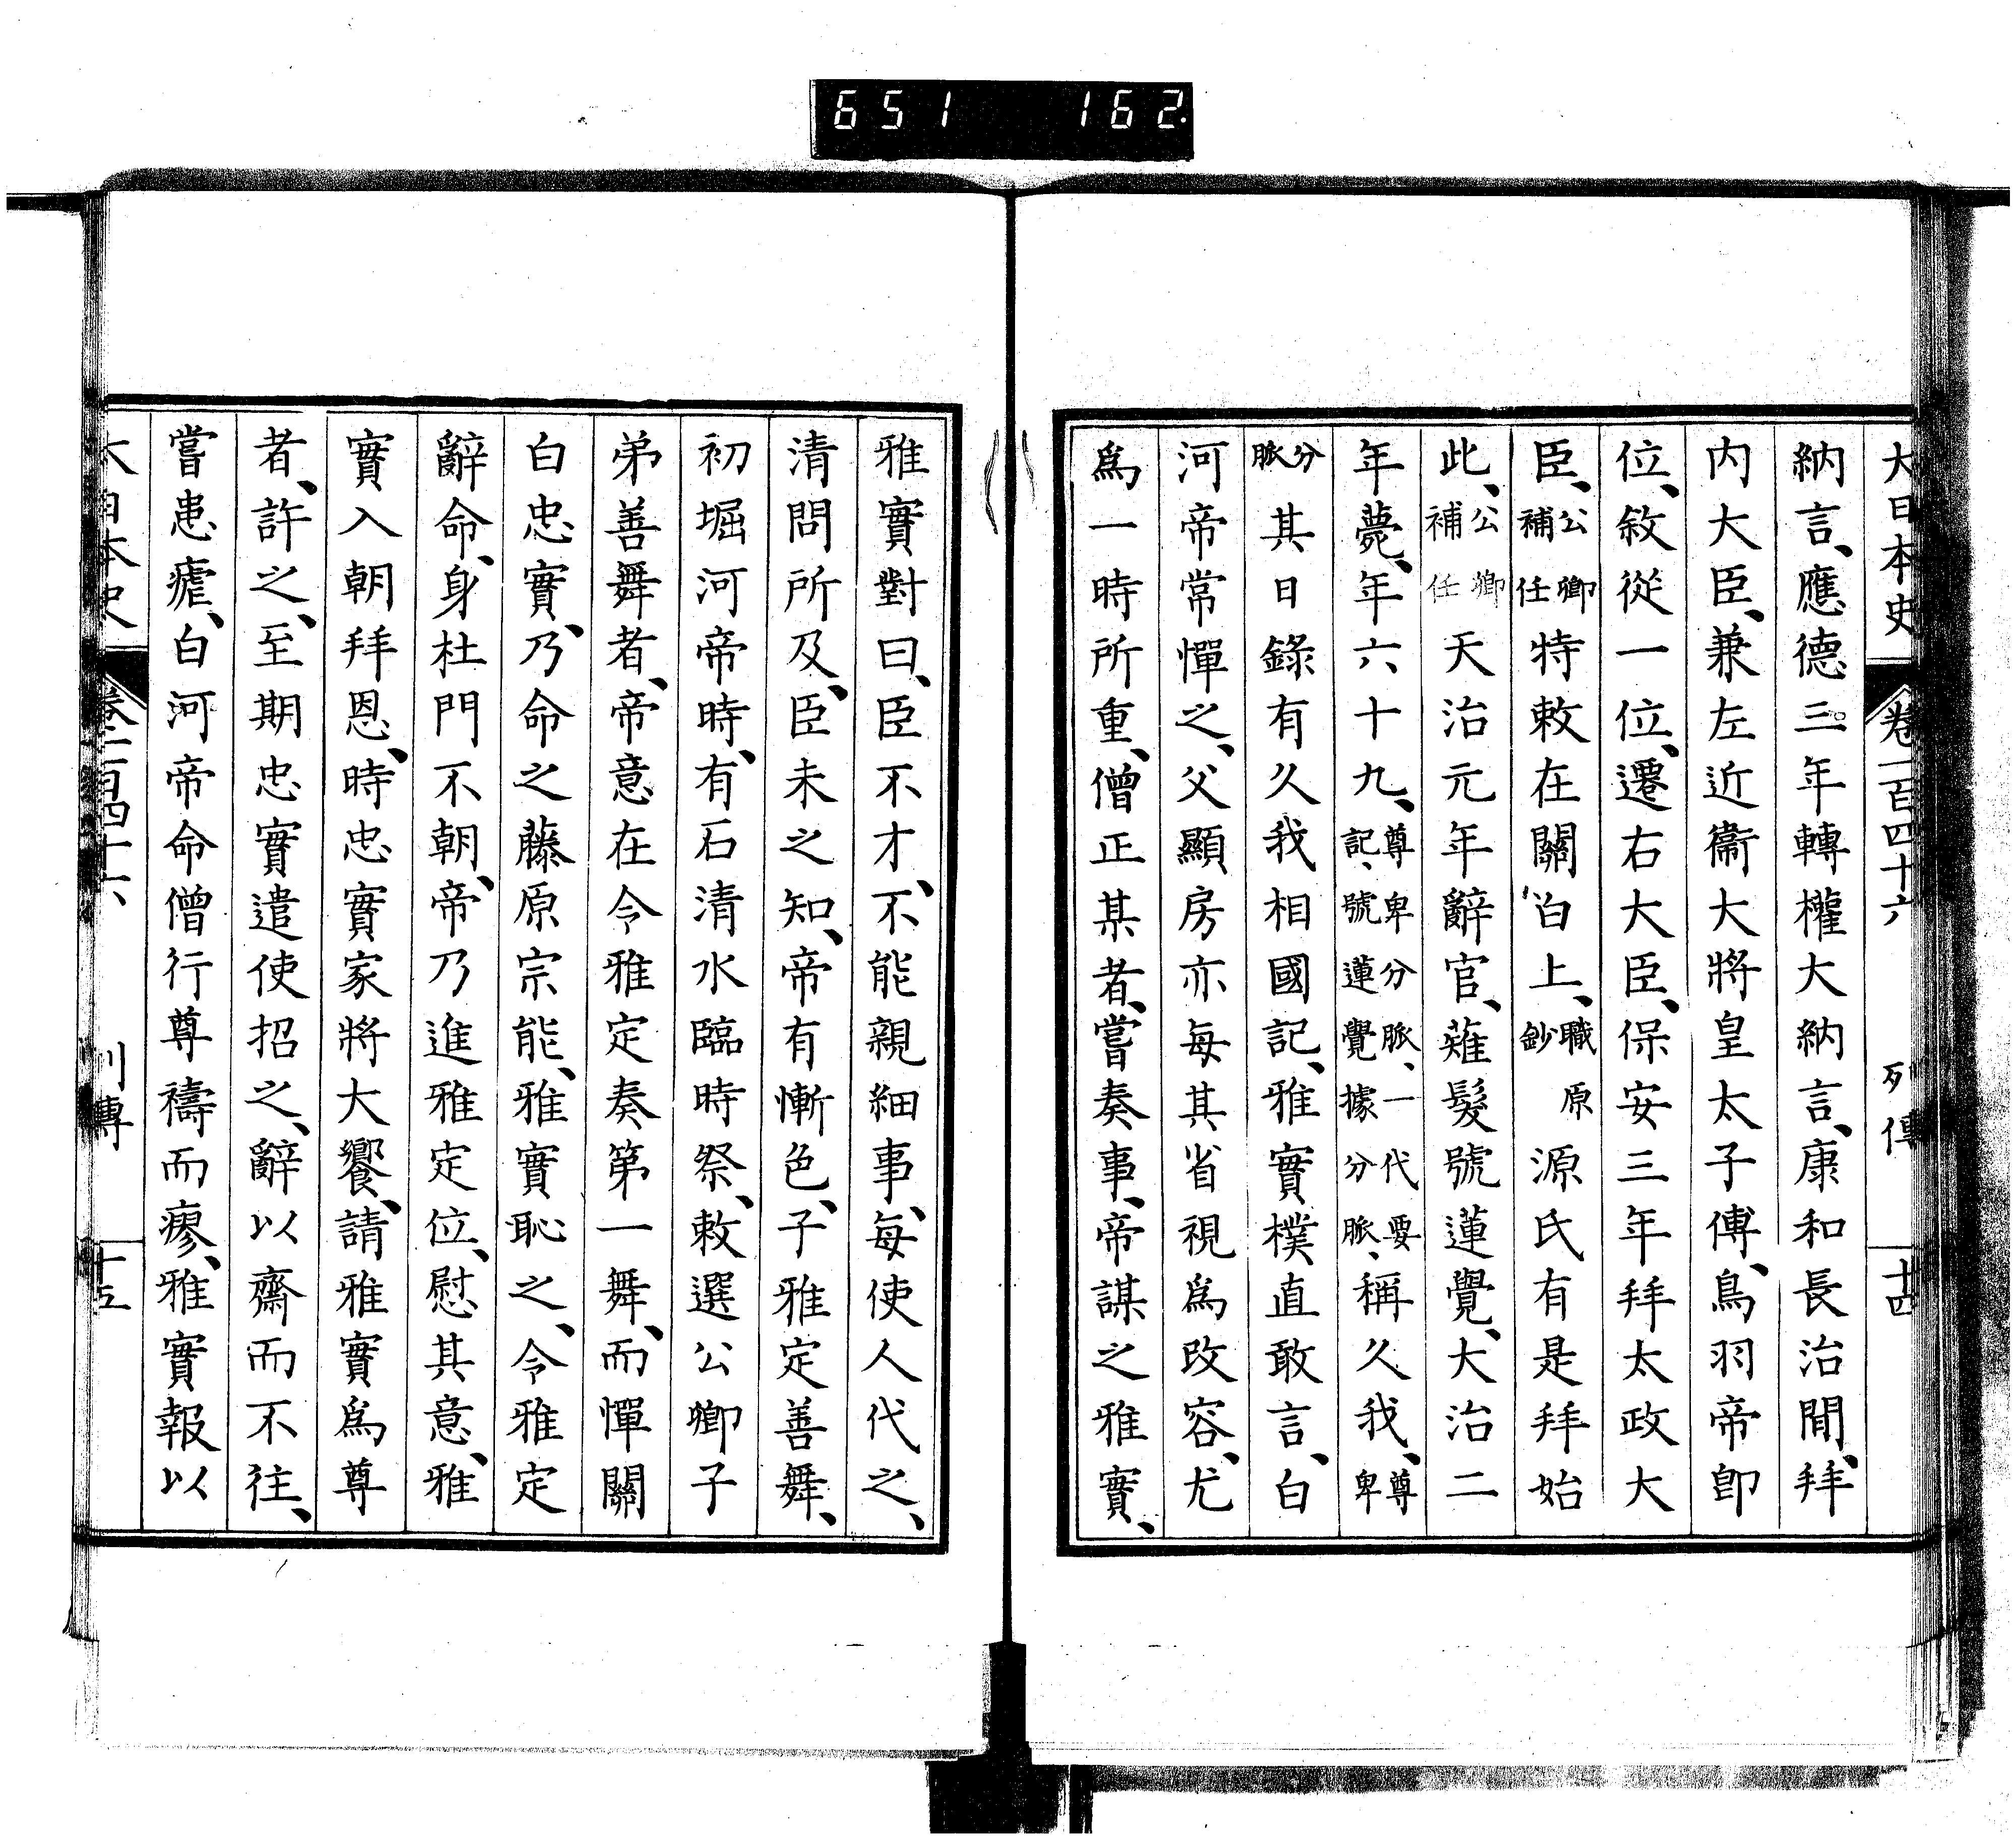 651 162
大日本史 卷一百四十六 列傳 十四
納言、應德三年轉權大納言、康和長治間、拜
內大臣、兼左近衞大將皇太子傅、鳥羽帝卽
位、敘從一位、遷右大臣、保安三年拜太政大
臣、公卿補任特敕在關白上、職原鈔源氏有是拜始
此、公卿補任天治元年辭官、薙髮號蓮覺、大治二
年薨、年六十九、尊卑分脈、一代要記、號蓮覺據分脈、稱久我、尊卑
分脈其日錄有久我相國記、雅實樸直敢言、白
河帝常憚之、父顯房亦每其省視爲改容、尤
爲一時所重、僧正某者、嘗奏事、帝謀之雅實、
雅實對曰、臣不才、不能親細事、每使人代之、
清問所及、臣未之知、帝有慚色、子雅定善舞、
初堀河帝時、有石清水臨時祭、敕選公卿子
弟善舞者、帝意在令雅定奏第一舞、而憚關
白忠實、乃命之藤原宗能、雅實恥之、令雅定
辭命、身杜門不朝、帝乃進雅定位、慰其意、雅
實入朝拜恩、時忠實家將大饗、請雅實爲尊
者、許之、至期忠實遣使招之、辭以齋而不往、
嘗患瘧、白河帝命僧行尊禱而瘳、雅實報以
大日本史 卷一百四十六 列傳 十五